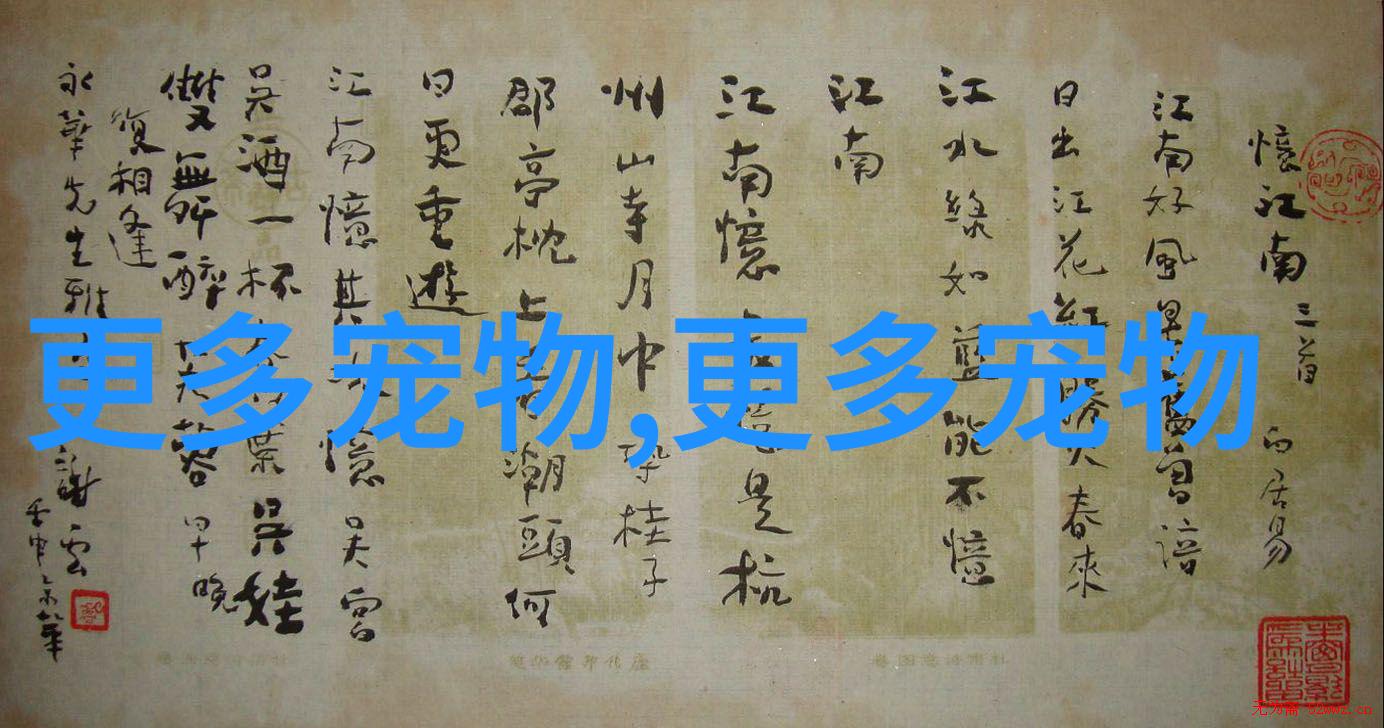 憶江南 三首 白居易
江南好風景舊曾諳
日出江花紅勝火春來
江水綠如藍能不憶
江南
江南憶最憶是杭
州山寺月中尋桂子
郡亭枕上看潮頭何
日更重遊
江南憶其次憶吳宮
吳酒一杯春竹葉吳娃
雙舞醉芙蓉早晚
復相逢
永華先生雅
謝雲
更多宠物,更多宠物
无为斋 52wwz.cn